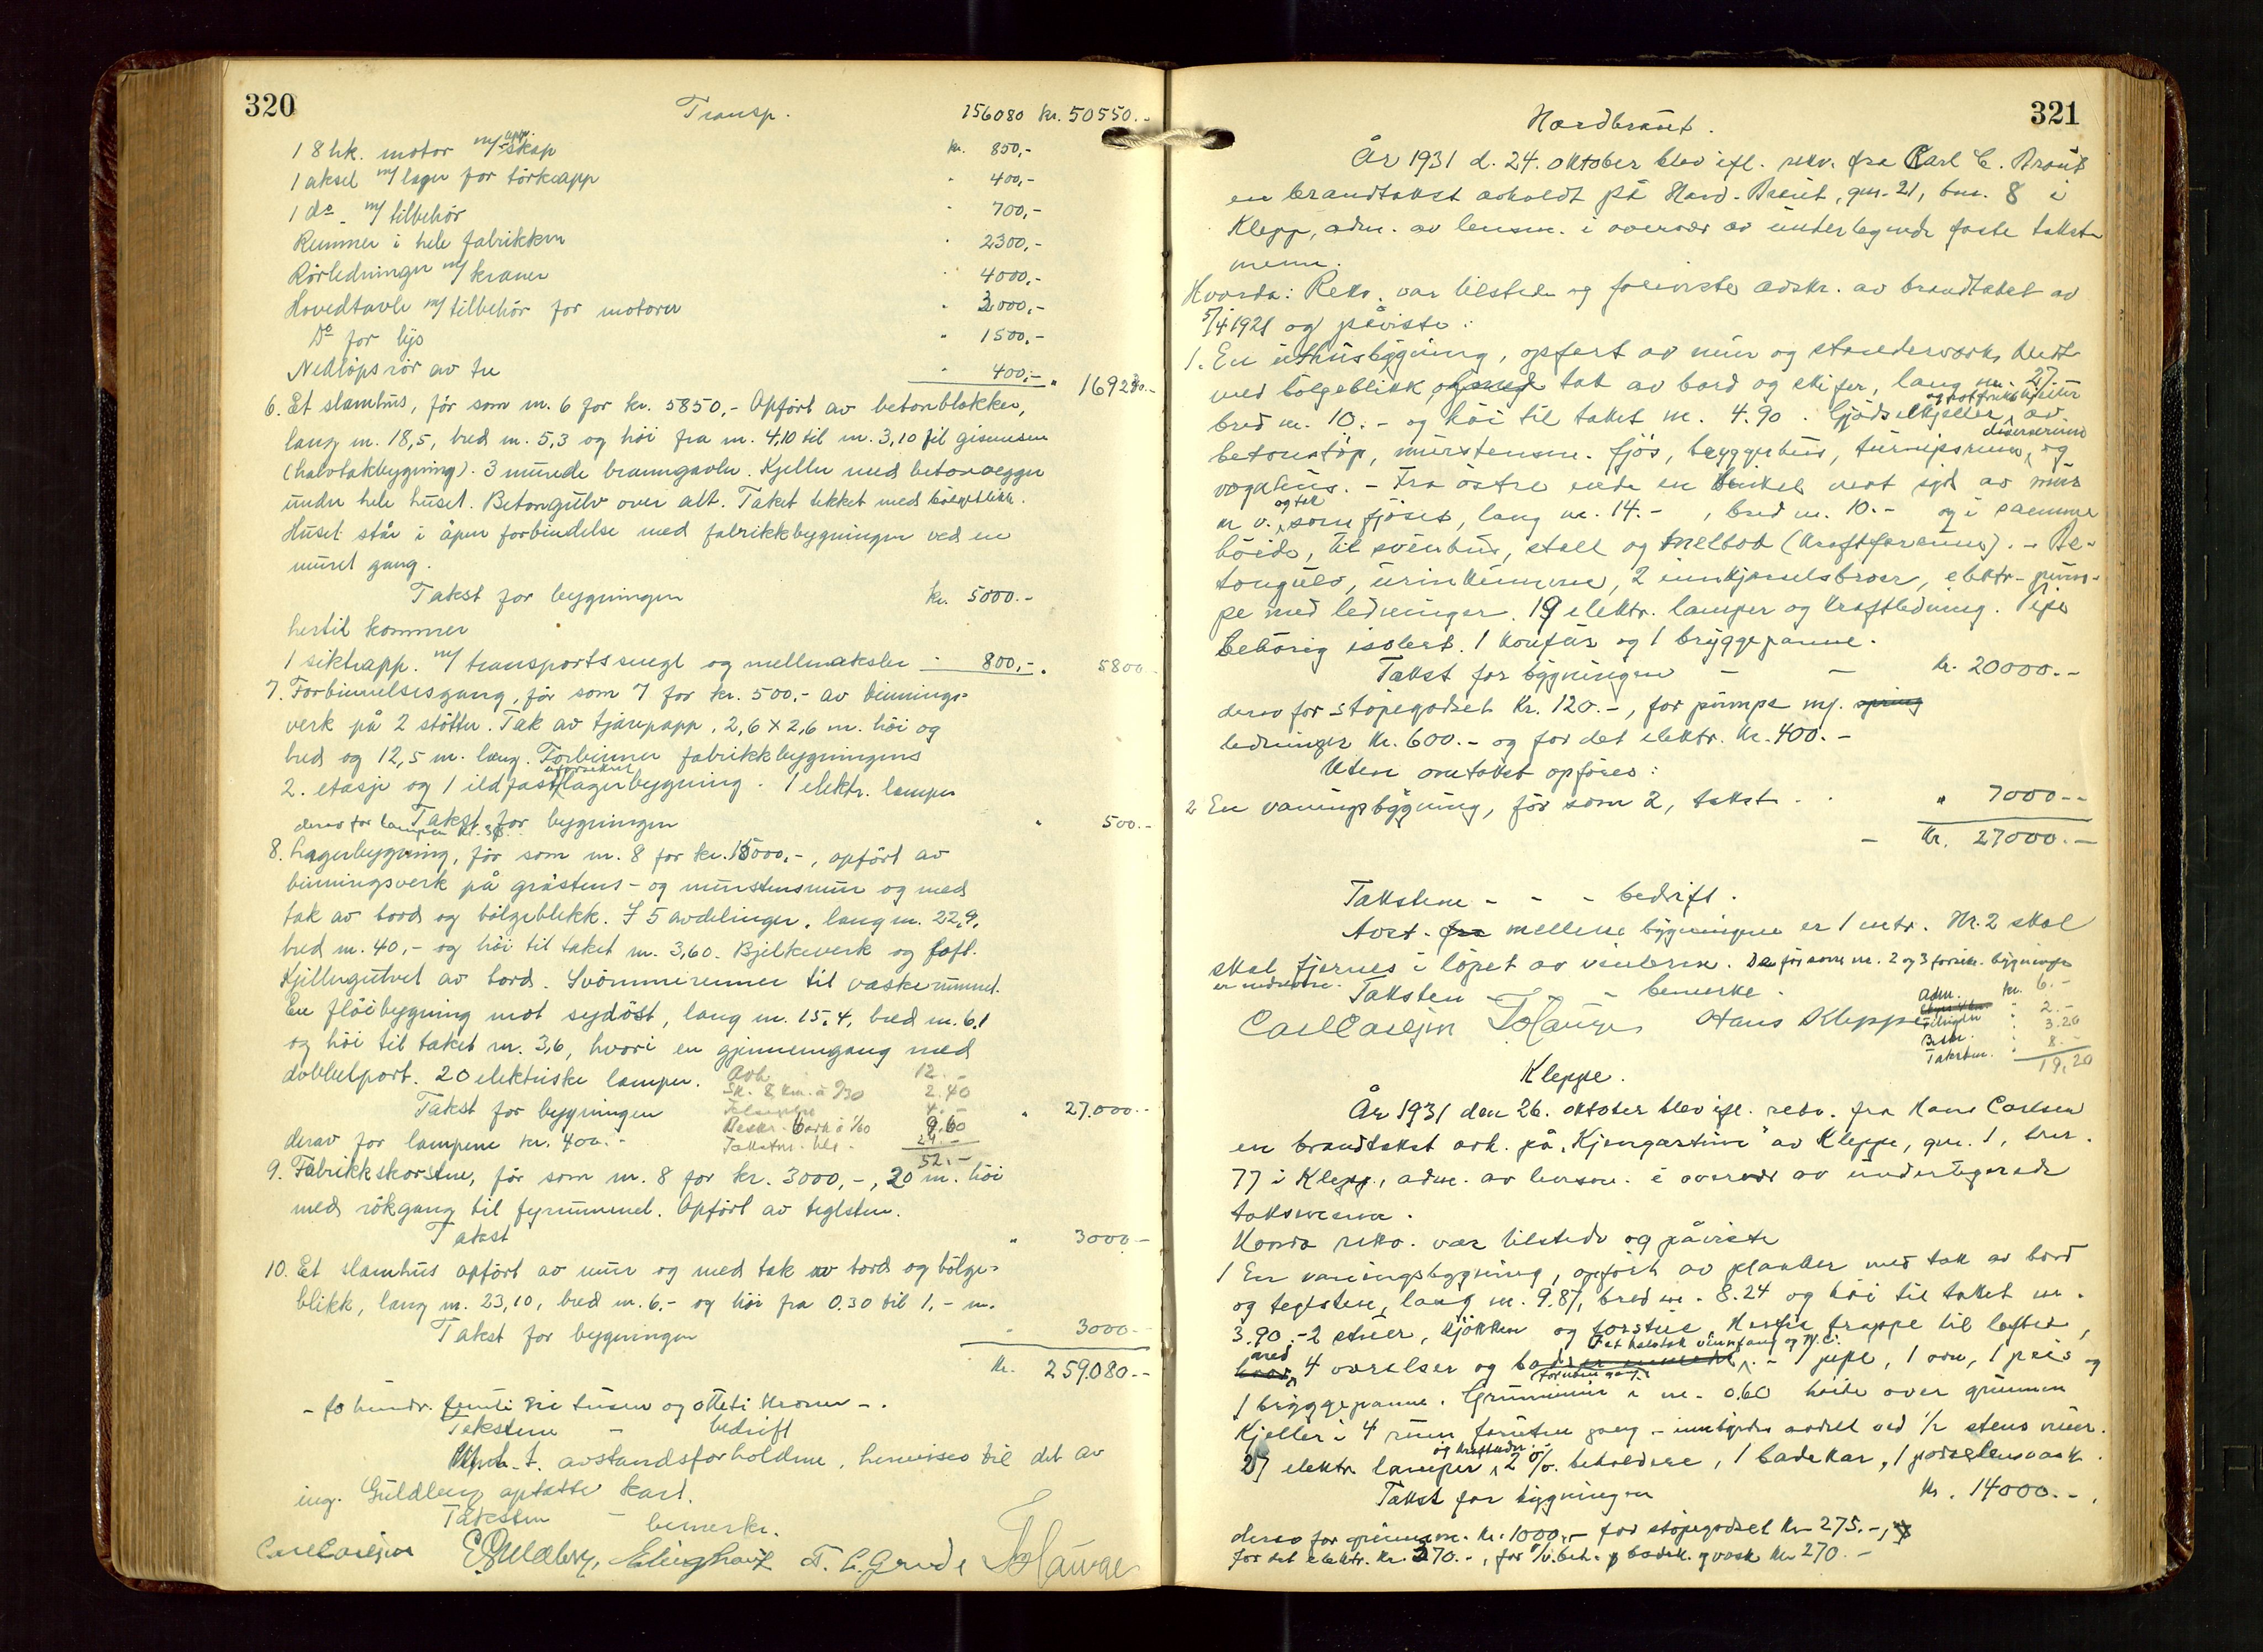 320
Transp. 156080 Kr. 50550.-
1 8 hk. motor m/ app. skap kr. 850,-
1 aksel m/ lager for törkeapp " 400,-
1 do. m/ tilbehör " 700,-
Renner i hele fabrikken " 2300,-
Rörledninger m/ kraner " 4000,-
Hovedtavle m/ tilbehör for motorer " 3000,-
Do for lys " 1500,-
Nedlöpsrör av tre " 400,- "
6. Et slamhus, för som nr. 6 for kr. 5850,- Opfört av betonblokker,
lang m. 18,5, bred m. 5,3 og höi fra m. 4,10 til m. 3,10 til gesimsen
(halvtakbygning). 3 murede branngavler. Kjeller med betonvegger
under hele huset. Betongulv over alt. Taket tekket med bölgeblikk.
Huset står i åpen forbindelse med fabrikkbygningen ved en
muret gang.
Takst for bygningen kr. 5000.-
hertil kommer
1 sikteapp. m/ transportsnegl og mellemaksler - 800,- " 5800
7. Forbinnelsesgang, för som 7 for kr. 500,- av binnings-
verk på 2 stötter. Tak av tjærepapp, 2,6 x 2,6 m. höi og
bred og 12,5 m. lang. Forbinner fabrikkbygningens
2. etasje og 1 ildfast uforsikret lagerbygning. 1 elektr. lampe
Takst for bygningen " 500.-
derav for lampen kr.
8. Lagerbygning, för som nr. 8 for kr. 15000,-, opfört av
binningsverk på gråstens- og murstensmur og med
tak av bord og bölgeblikk. I 5 avdelinger, lang m. 22,9,
bred m. 40,- og höi til taket m. 3,60. Bjelkeverk og loft.
Kjellergulvet av bord. Svömmerenner til vaskerummet.
En flöibygning mot sydöst, lang m. 15,4, bred m. 6,1
og höi til taket m. 3,6, hvori en gjennemgang med
dobbelport. 20 elektriske lamper. Avh. 12.-
Sk. 8 km. à 0/30 2.40
Takst for bygningen 4.- " 27.000.-
Beskr. 9.60
derav for lampene kr. 400.- Takstm. 24.-
52.-
9. Fabrikkskorsten, för som nr. 8 for kr. 3000,-, 20 m. höi
med rökgang til fyrrummet. Opfört av teglsten.
Takst " 3000-
10. Et slamhus opfört av mur og med tak av bord og bölge-
blikk, lang m. 23,10, bred m. 6,- og höi fra 0.30 til 1,- m.
Takst for bygningen " 3000-
Kr. 259.080.-
- to hundr. femti ni tusen og otteti kroner -.
Takstene - bedrift
avstandsforholdene, henvises til det av
ing. Guldberg optatte kart.
Taksten - bemerke.
Carl Carlsen E. Guldberg, T. C. Grude T. Hauge
321
Nordbraut.
År 1931 d. 24. oktober blev ifl. rekv. fra Karl C. Braut
en brandtakst avholdt på Nord-Braut, gnr. 21, bnr. 8 i
Klepp, adm. av lensm. i overvær av undertegnede faste takst-
menn.
Hvorda: Rekv. var tilstede og foreviste avskr. av brandtakst av
5/4 1921 og påviste:
1. En uthusbygning, opfört av mur og standerverk, klædt
med bölgeblikk og med tak av bord og skifer, lang m. 27,
bred m. 10.- og höi til taket m. 4.90. Gjödselkjeller av
betonstöp, murstens. fjös, bryggehus, turnipsrum, og
vognhus. - Fra östre ende en vinkel mot syd av mur
m. v. og tak som fjöset, lang m. 14.-, bred m. 10.- og i samme
höide, til svinehus, stall og melbod (kraftforrum). - Be-
tongulv, urinkumme, 2 innkjörselsbroer, elektr. pum-
pe med ledninger. 19 elektr. lamper og kraftledning. Pipe
behörig isolert. 1 komfur og 1 bryggepanne.
Takst for bygningen - - kr. 20000.-
derav for stöpegodset kr. 120.-, for pumpe m/. spring
ledninger kr. 600.- og for det elektr. kr. 400.-
Uten omtakst opföres:
2 En våningsbygning, för som 2, takst - " 7000.-
- Kr. 27000.-
Takstene - - - bedrift.
Avst. fra mellem bygningene er 1 mtr. Nr. 2 skal
skal fjernes i löpet av vinteren. De för som nr. 2 og 3 forsikr. bygninger
er nedrevne.
Taksten - - bemerke. Adm. kr. 6.-
Carl Carlsen T. Hauge Hans Kleppe " 2.-
" 3.20
Beskr. " 8.-
Takstm. 19,20
Kleppe.
År 1931 den 26. oktober blev ifl. rekv. fra Hans Carlsen
en brandtakst avh. på "Kjengartun" av Kleppe, gnr. 1, bnr.
77 i Klepp, adm. av lensm. i overvær av undertegnede
takstmenn.
Hvorda rekv. var tilstede og påviste
1 En våningsbygning, opfört av planker med tak av bord
og teglsten, lang m. 9.87, bred m. 8.24 og höi til taket m.
3.90.- 2 stuer, kjökken og forstue. Herfra trappe til loftet,
med 4 værelser og 1 pipe, 1 ovn, 1 peis og
1 bryggepanne. Grunnmur i m. 0.60 höide over grunnen
Kjeller i 4 rum foruten gang - innbyrdes avdelt ved 1/2 stens mur.
27 elektr. lamper og kraftledn. 2 beholdere, 1 badekar, 1 porselensvask.
Takst for bygningen Kr. 14000.-.
derav for grunnm. kr. 1000.- for stöpegodset kr. 275.-,
for det elektr. kr. 270.-, for v. beh. og badek. og vask kr 270.-